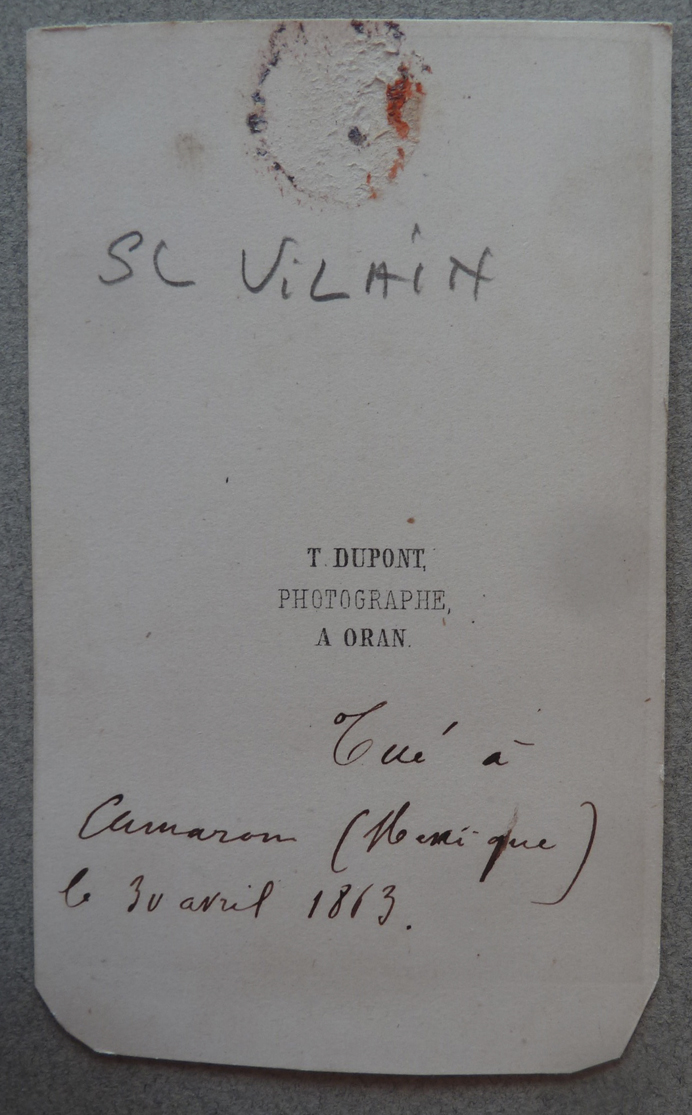 SL ViLAiN
T. DUPONT,
PHOTOGRAPHE,
A ORAN.
Tué à
Camaron (Mexique)
le 30 avril 1863.